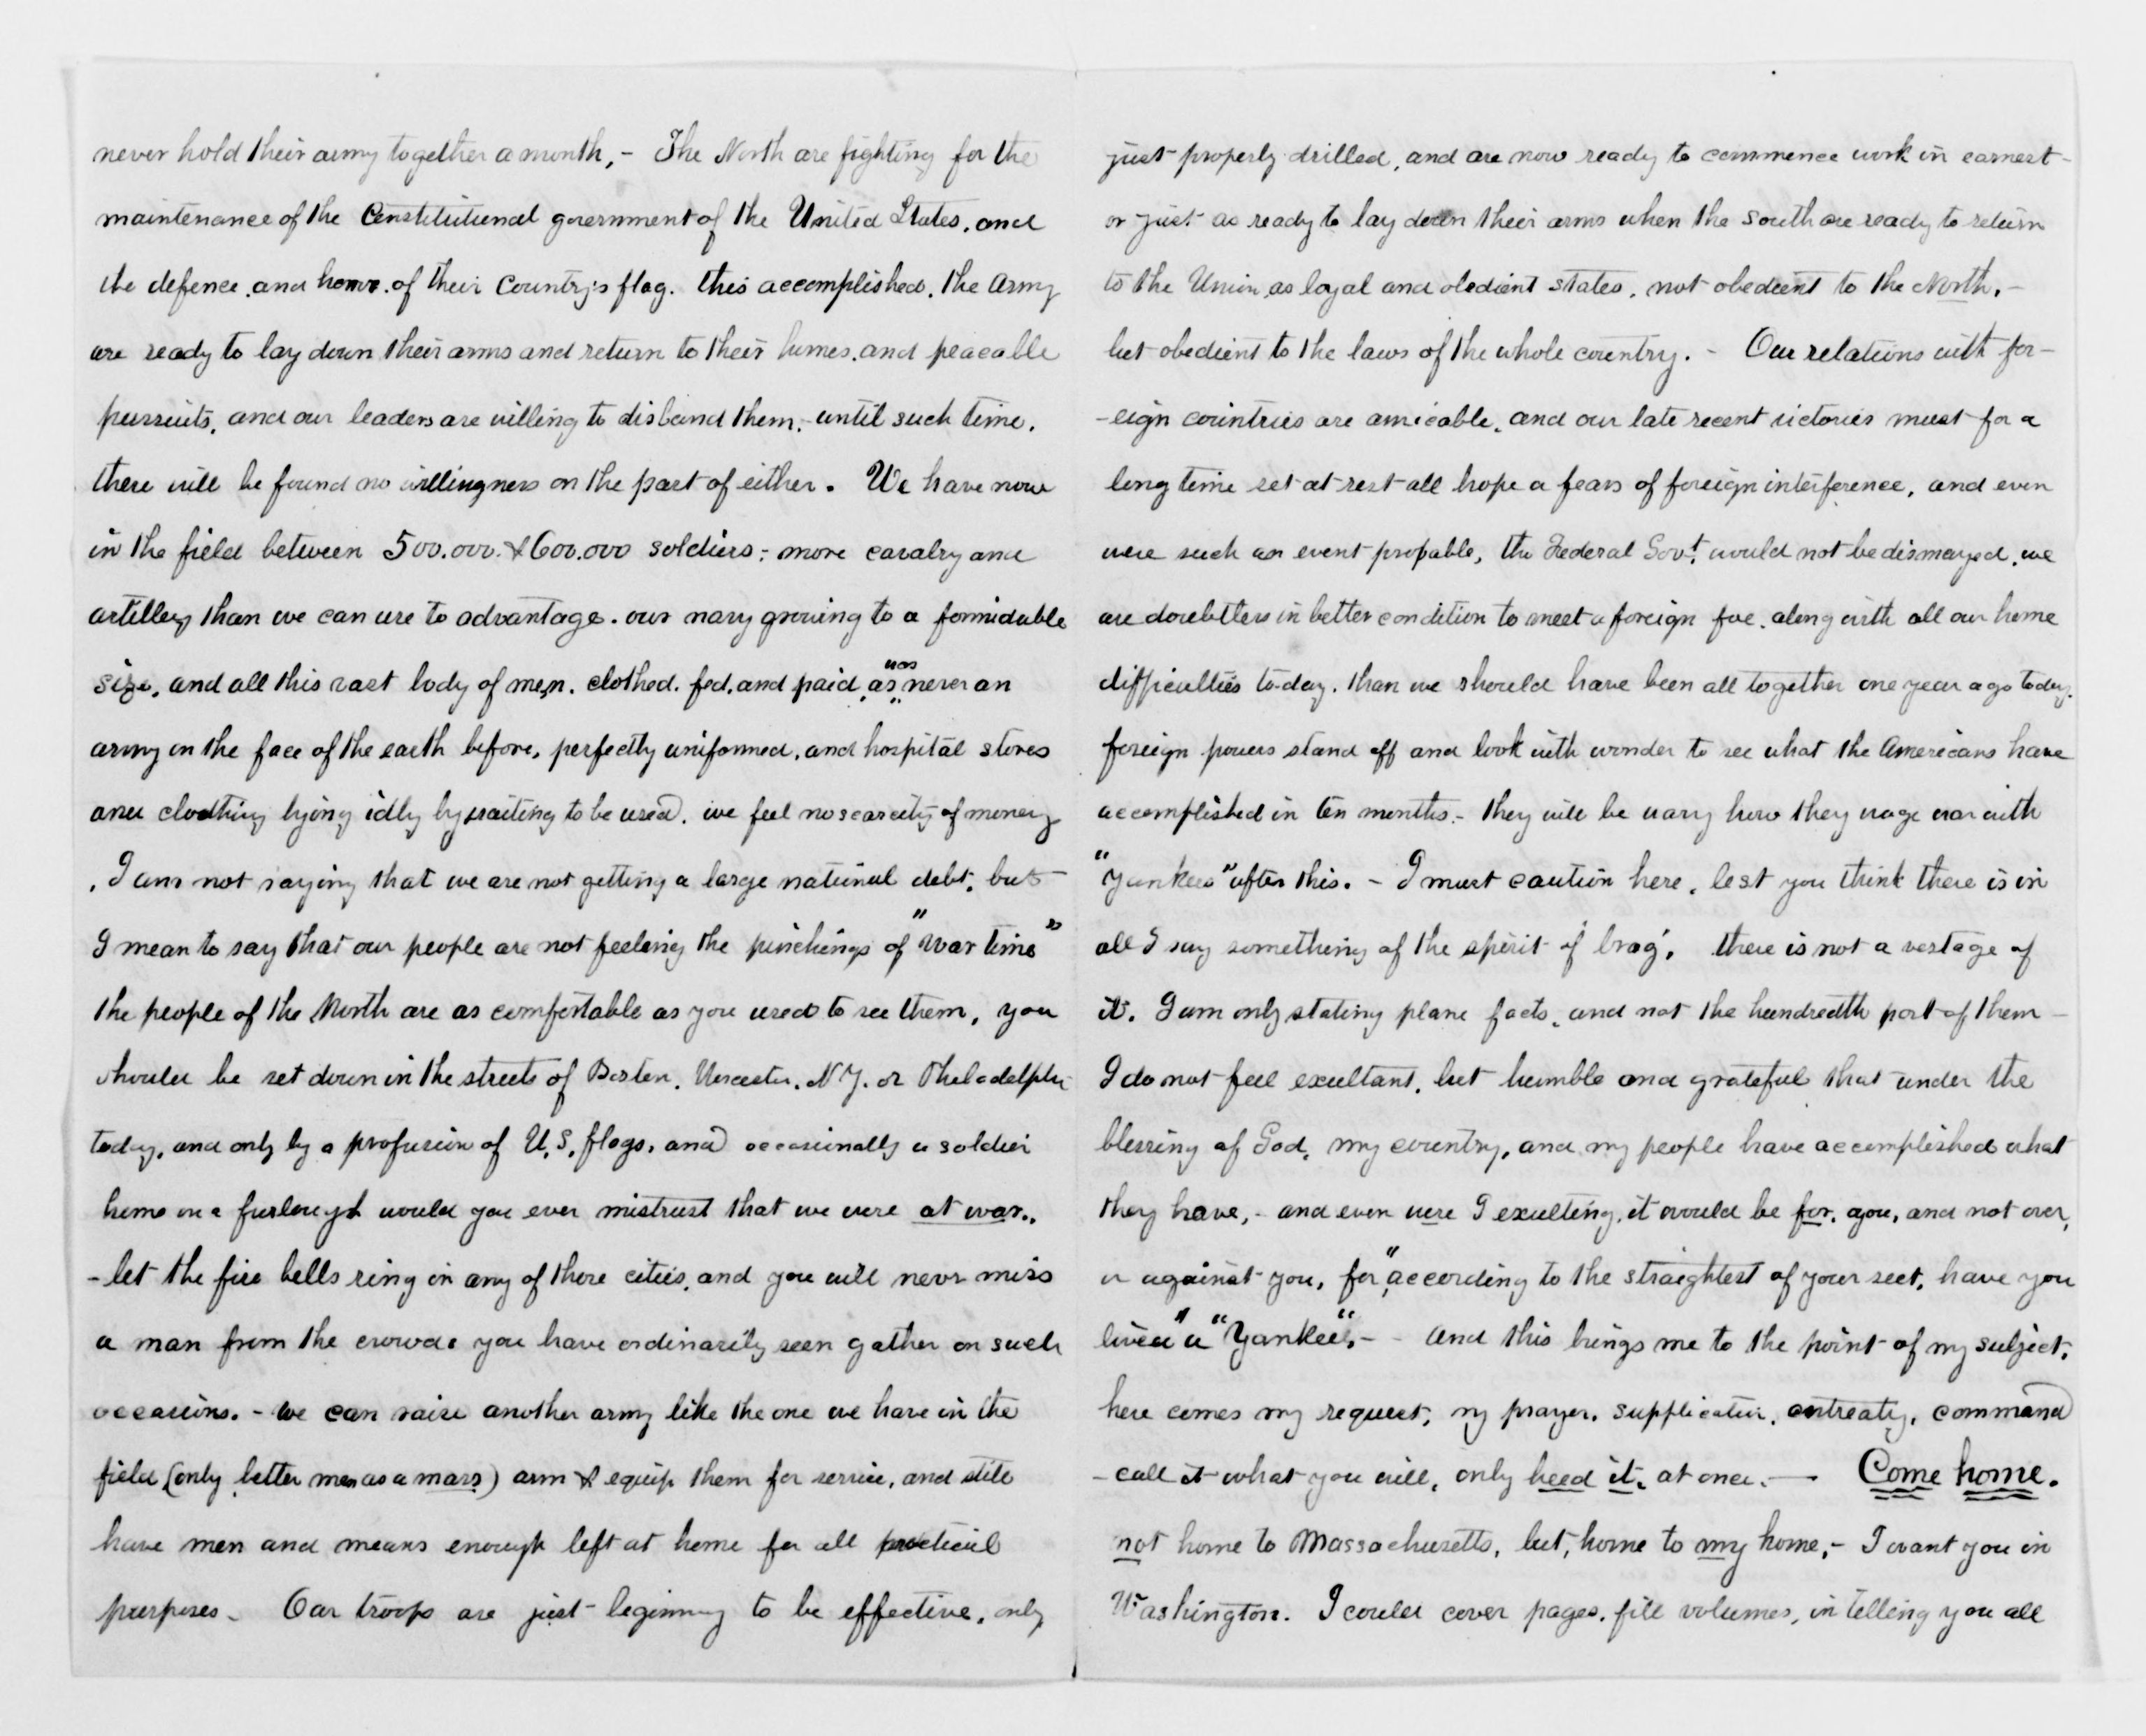 never hold their army together a month, - The North are fighting for the
maintenance of the Constitutional government of the United States, and
the defence and honor of their Country's flag. this accomplished, the Army
are ready to lay down their arms and return to their homes, and peaceable
pursuits, and our leaders are willing to disband them, - until such time,
there will be found no willingness on the part of either. We have now
in the field between 500.000. & 600.000 soldiers; more cavalry and
artillery than we can use to advantage. our navy growing to a formidable
size, and all this vast body of men, clothed, fed, and paid, as was never an
army on the face of the earth before, perfectly uniformed, and hospital stores
and clothing lying idly by waiting to be used. we feel no scarcity of money
, I am not saying that we are not getting a large national debt, but
I mean to say that our people are not feeling the pinchings of "war time"
the people of the North are as comfortable as you used to see them, you
should be set down in the streets of Boston, Worcester, N.Y. or Philadelphia
today, and only by a profusion of U.S. flags, and occasionally a soldier
home on a furlough would you ever mistrust that we were at war.,
- let the fire bells ring in any of those cities, and you will never miss
a man from the crowds you have ordinarily seen gather on such
occasions. - we can raise another army like the one we have in the
field (only better men as a mass) arm & equip them for service, and still
have men and means enough left at home for all practical
purposes - Our troops are just beginning to be effective, only
just properly drilled, and are now ready to commence work in earnest -
or just as ready to lay down their arms when the South are ready to return
to the Union as loyal and obedient states, not obedient to the North, -
but obedient to the laws of the whole country. - Our relations with for-
-eign countries are amicable, and our late recent victories must for a
long time set at rest all hope a fears of foreign interference, and even
were such an event probable, the Federal Govt. would not be dismayed, we
are doubtless in better condition to meet a foreign foe, along with all our home
difficulties to-day, than we should have been all together one year ago today.
foreign powers stand off and look with wonder to see what the Americans have
accomplished in ten months. - they will be wary how they wage war with
"Yankees" after this. - I must caution here, lest you think there is in
all I say something of the spirit of brag, there is not a vestage of
it. I am only stating plane facts, and not the hundredth part of them -
I do not feel exultant, but humble and grateful that under the
blessing of God, my country, and my people have accomplished what
they have, - and even were I exulting, it would be for, you, and not over,
or against you, for, "according to the straightest of your sect, have you
lived" a "Yankee". - - And this brings me to the point of my subject,
here comes my request, my prayer, supplication, entreaty, command
- call it what you will, only heed it, at once. — Come home.
not home to Massachusetts, but, home to my home, - I want you in
Washington. I could cover pages, fill volumes, in telling you all